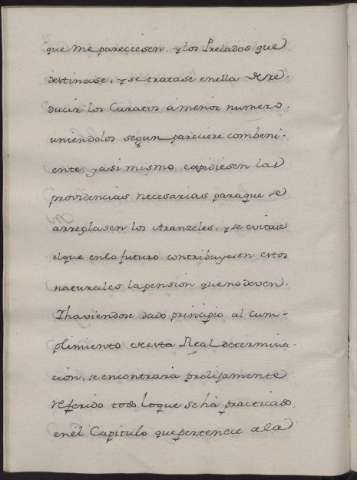 que me pareciesen y los Prelados que
destinase, y se tratase en ella de re-
ducir los Curatos a menor numero,
uniendolos segun pareciere combeni-
ente, y asi mismo expidiesen las
providencias necesarias para que se
arreglasen los Aranzeles, y se evitase
el que en lo futuro contribuyesen estos
naturales la pension que no deven.
Ihaviendose dado principio al Cum-
plimiento de esta Real determina-
cion, se encontrara prolijamente
referido todo lo que se há practicado
en él Capitulo que pertenecie a la